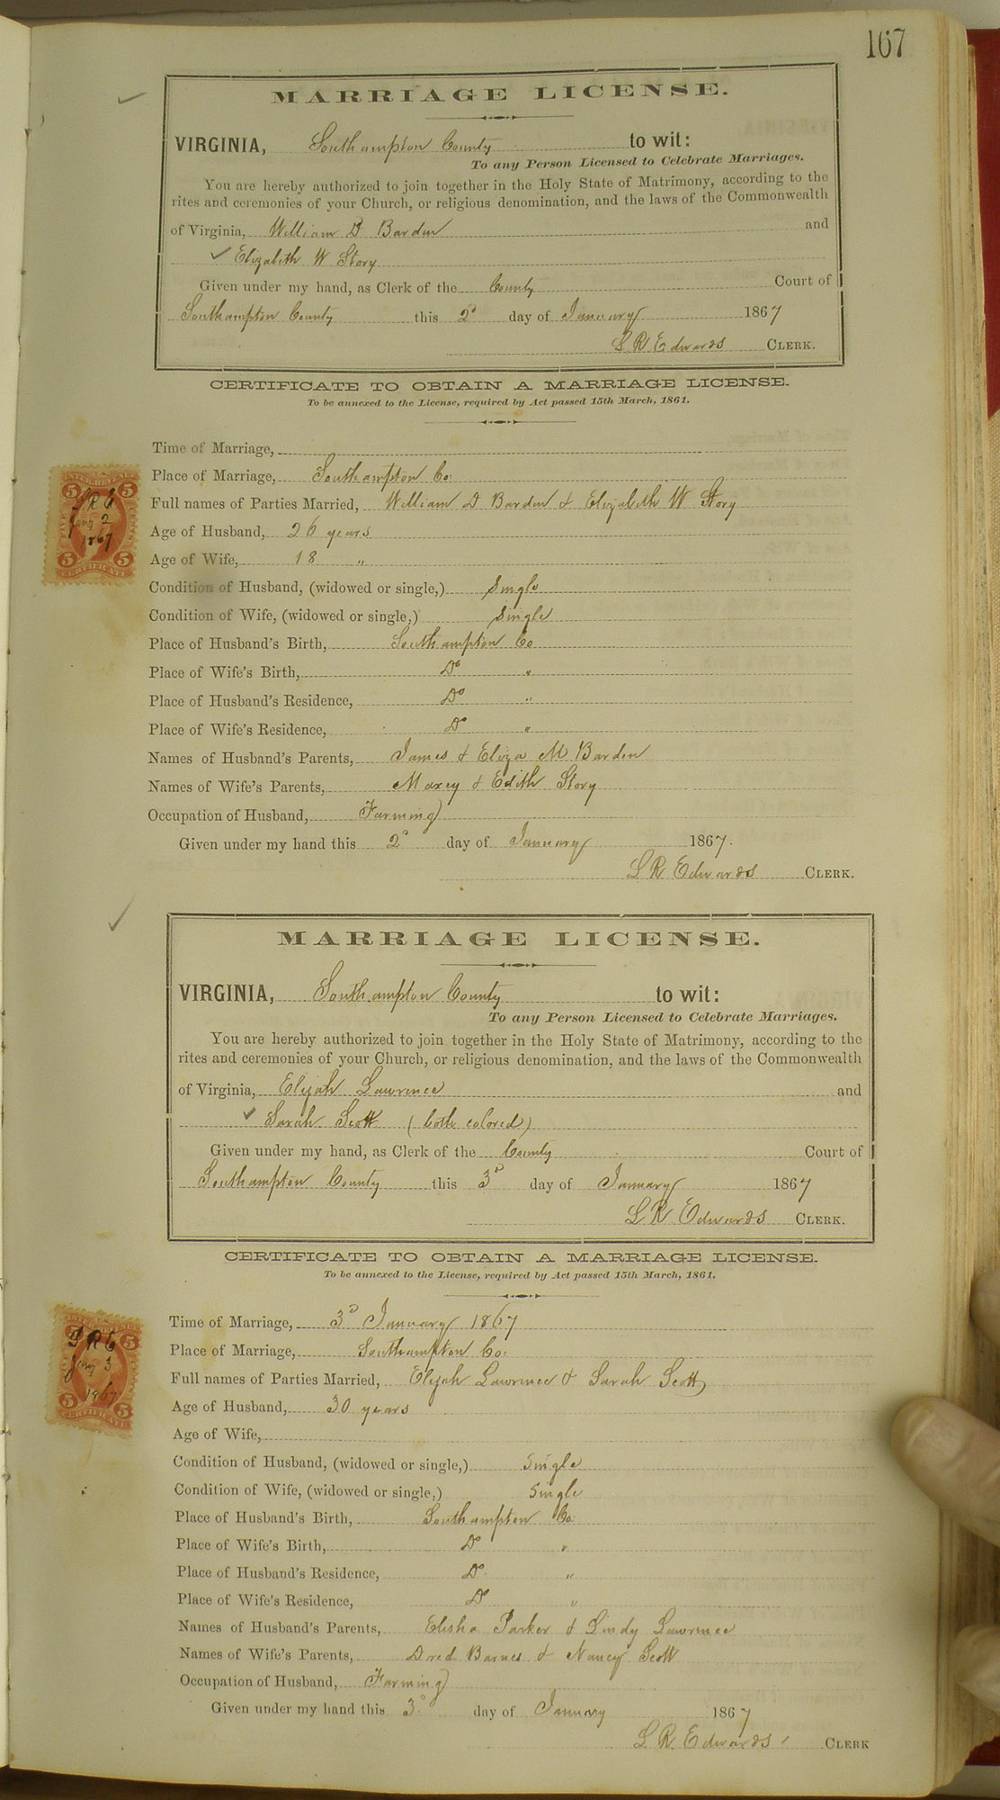 167
MARRIAGE LICENSE.
VIRGINIA, Southampton County to wit:
To any Person Licensed to Celebrate Marriages.
You are hereby authorized to join together in the Holy State of Matrimony, according to the
rites and ceremonies of your Church, or religious denomination, and the laws of the Commonwealth
of Virginia, William D Barden and
Elizabeth W Story
Given under my hand, as Clerk of the County Court of
Southampton County this 2d day of January 1867
L R Edwards CLERK.
CERTIFICATE TO OBTAIN A MARRIAGE LICENSE.
To be annexed to the License, required by Act passed 15th March, 1861.
Time of Marriage,
Place of Marriage, Southampton Co.
Full names of Parties Married, William D Barden & Elizabeth W Story
Age of Husband, 26 years
Age of Wife, 18 "
Condition of Husband, (widowed or single,) Single
Condition of Wife, (widowed or single,) Single
Place of Husband's Birth, Southampton Co
Place of Wife's Birth, Do "
Place of Husband's Residence, Do "
Place of Wife's Residence, Do "
Names of Husband's Parents, James & Eliza M Barden
Names of Wife's Parents, Marcy & Edith Story
Occupation of Husband, Farming
Given under my hand this 2d day of January 1867.
L R Edwards CLERK.
5 5
L R E
Jany 2
1867
5 5
CERTIFICATE
MARRIAGE LICENSE.
VIRGINIA, Southampton County to wit:
To any Person Licensed to Celebrate Marriages.
You are hereby authorized to join together in the Holy State of Matrimony, according to the
rites and ceremonies of your Church, or religious denomination, and the laws of the Commonwealth
of Virginia, Elijah Lawrence and
Sarah Scott (both colored)
Given under my hand, as Clerk of the County Court of
Southampton County this 3d day of January 1867
L R Edwards CLERK.
CERTIFICATE TO OBTAIN A MARRIAGE LICENSE.
To be annexed to the License, required by Act passed 15th March, 1861.
Time of Marriage, 3d January 1867
Place of Marriage, Southampton Co.
Full names of Parties Married, Elijah Lawrence & Sarah Scott
Age of Husband, 30 years
Age of Wife,
Condition of Husband, (widowed or single,) Single
Condition of Wife, (widowed or single,) Single
Place of Husband's Birth, Southampton Co
Place of Wife's Birth, Do "
Place of Husband's Residence, Do "
Place of Wife's Residence, Do "
Names of Husband's Parents, Elisha Parker & Lindy Lawrence
Names of Wife's Parents, Dred Barnes & Nancy Scott
Occupation of Husband, Farming
Given under my hand this 3d day of January 1867
L. R. Edwards CLERK
5
L R E
Jany 3
1867
5 5
CERTIFICATE